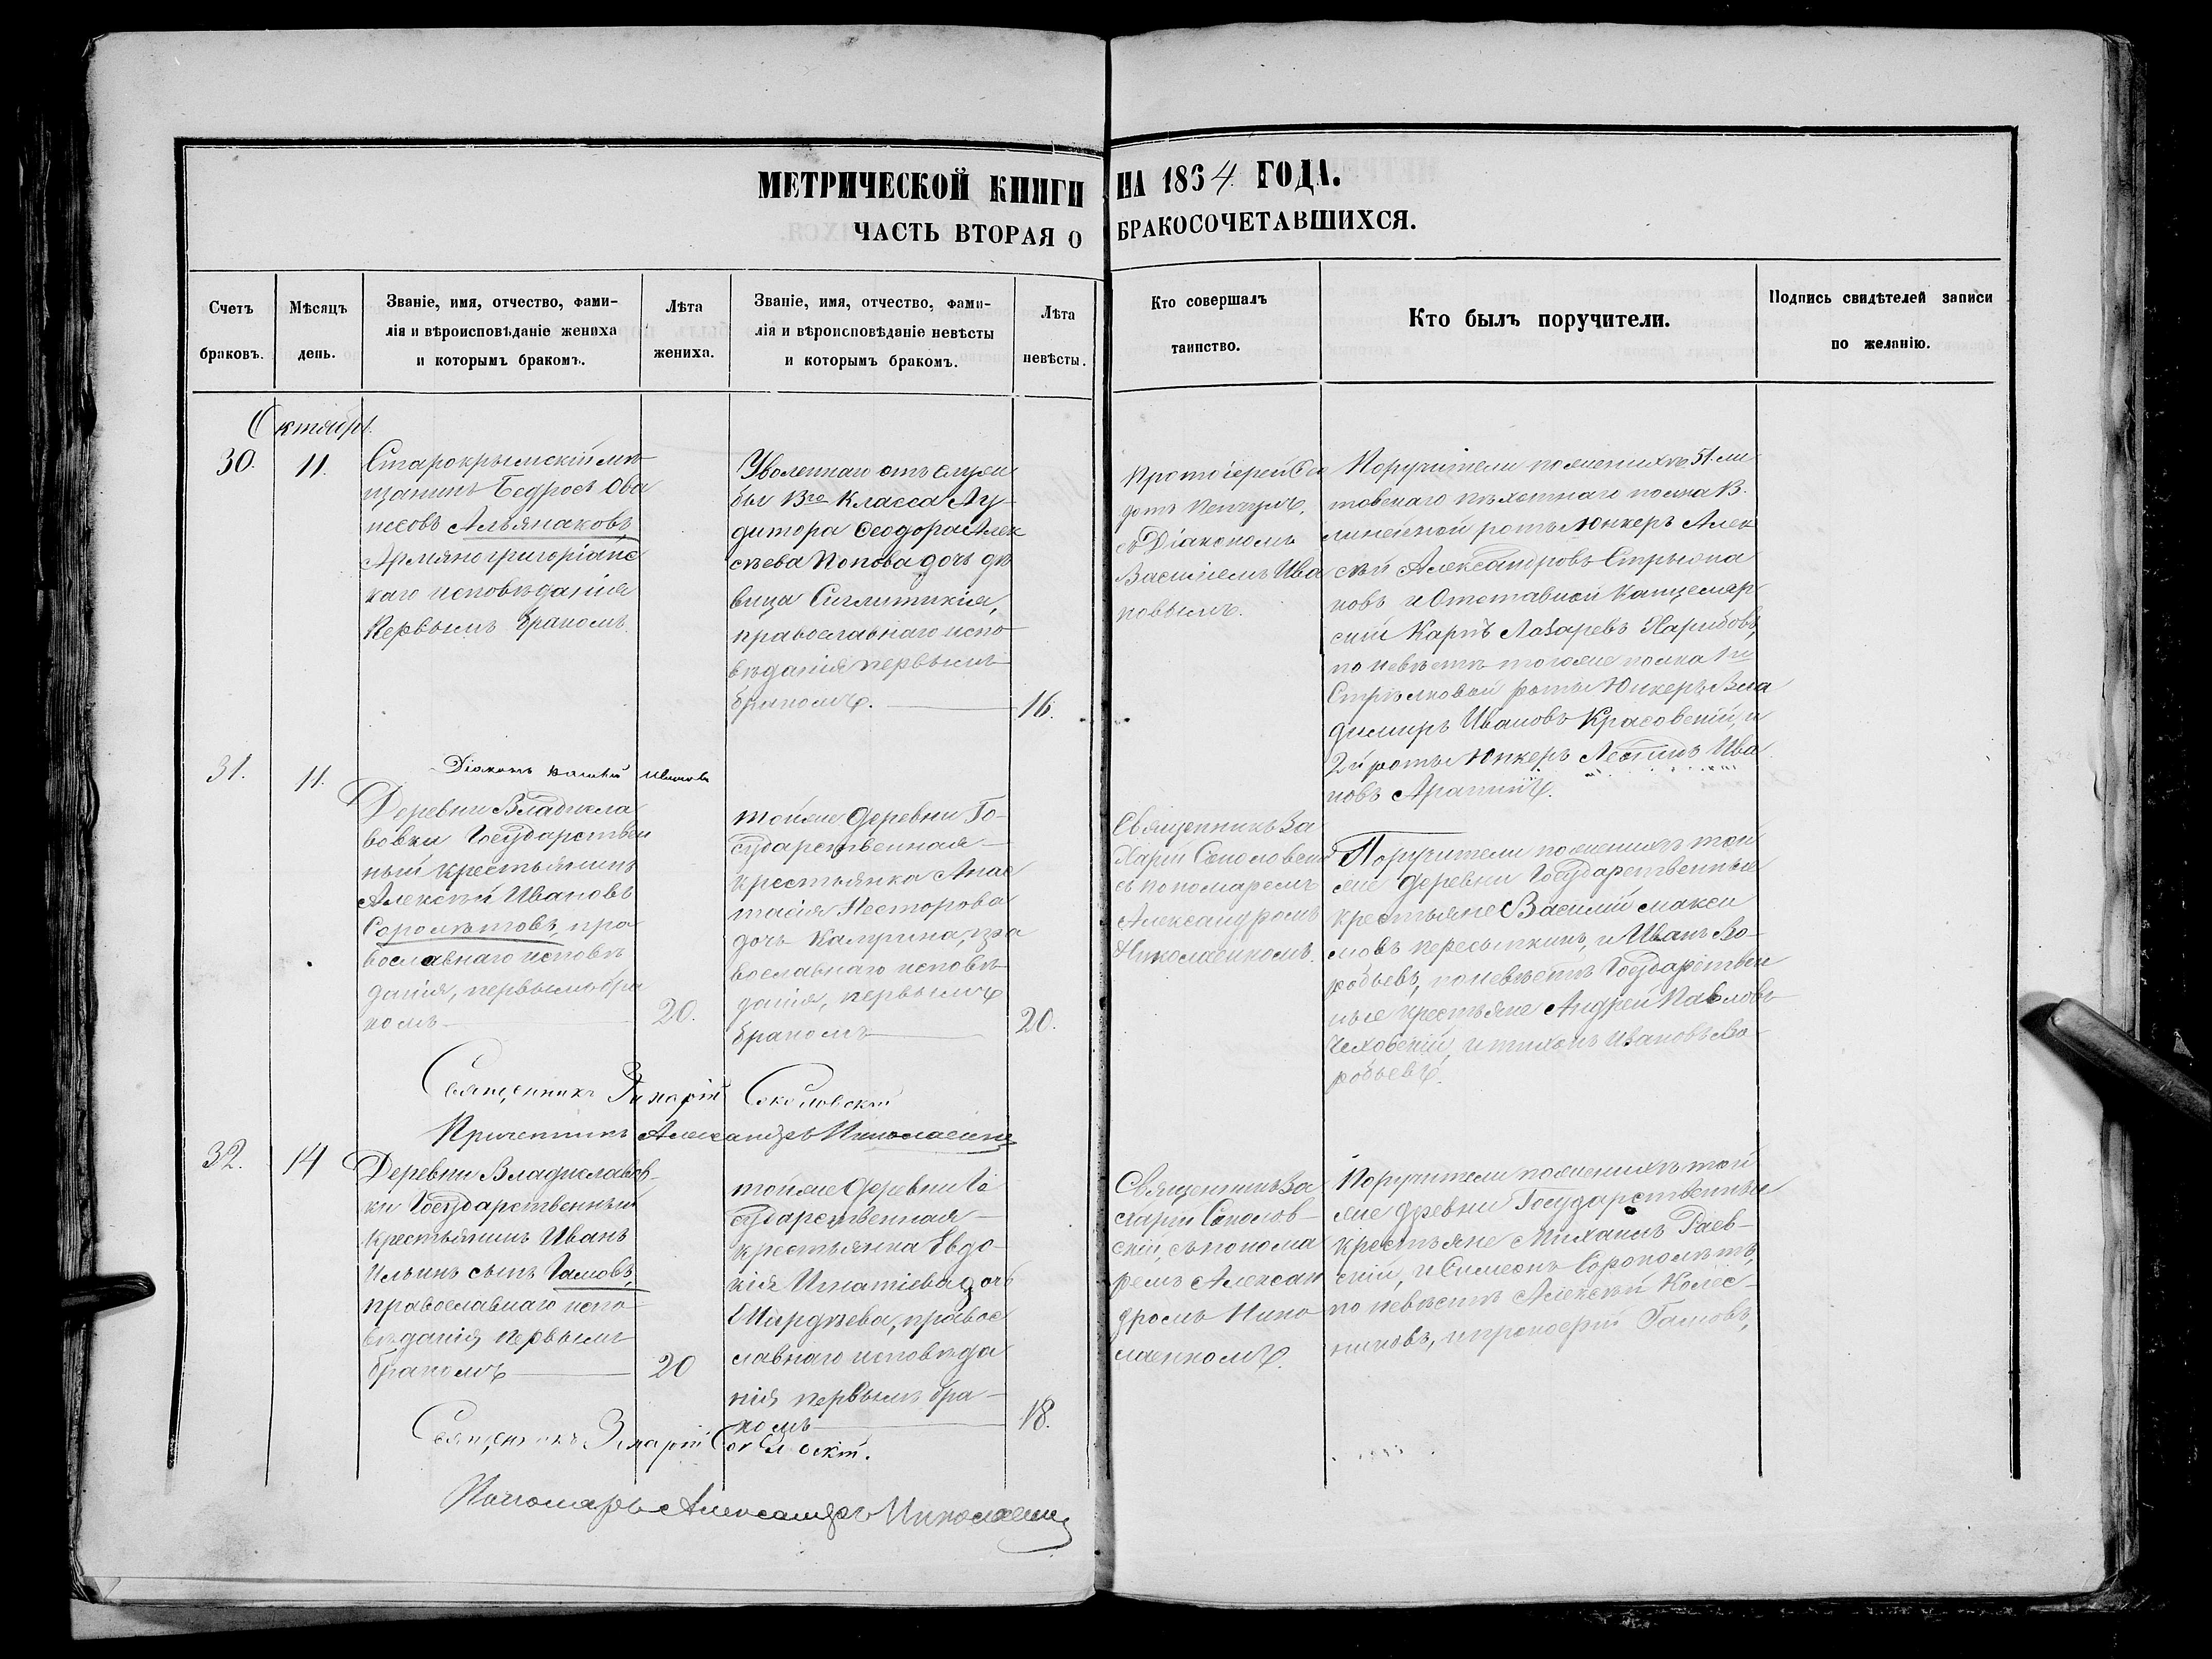 МЕТРИЧЕСКОЙ КНИГИ НА 1864 ГОДА.
ЧАСТЬ ВТОРАЯ О БРАКОСОЧЕТАВШИХСЯ.
Счетъ
браковъ.
Мѣсяцъ
день.
Званіе, имя, отчество, фами-
лія и вѣроисповѣданіе жениха
и которымъ бракомъ.
Лѣта
жениха.
Званіе, имя, отчество, фами-
лія и вѣроисповѣданіе невѣсты
и которымъ бракомъ.
Лѣта
невѣсты.
Кто совершалъ
таинство.
Кто былъ поручители.
Подпись свидѣтелей записи
по желанію.
Октябрь
30.
11.
Старокрымскій мѣ-
щанинъ Бедросъ Ова
несовъ Альянаковъ,
Армяногригоріанс
каго исповѣданія
Первымъ бракомъ.
Уволеннаго отъ служ
бы 13го Класса Ау-
дитора Ѳеодора Алек
сѣева Попова дочь дѣ
вица Сигклитикія,
православнаго испо-
вѣданія первымъ
бракомъ.
16.
Протоіерей
съ Діакономъ
Василіемъ Ива
новымъ.
Поручители по женихѣ 51. ли
товскаго пѣхотнаго полка 3.
линейной роты Юнкеръ Алек
сѣй Александровъ
ковъ и Отставной Канцеляр
скій Карпъ Лазаревъ Харибовъ,
по невѣстѣ тогоже полка 1й
Стрѣлковой роты Юнкеръ Вла
димиръ Ивановъ Красовскій, и
2й роты Юнкеръ Леонидъ Ива
новъ
Діаконъ Василій Ивановъ
31.
11.
Деревни Владисла
вовки Государствен
ный крестьянинъ
Алексѣй Ивановъ
Сороколѣтовъ, пра
вославнаго исповѣ
данія, первымъ бра
комъ
20.
тойже деревни Го-
сударственная
крестьянка Анас
тасія Несторова
дочь Катрина, пра
вославнаго исповѣ
данія, первымъ
бракомъ
20.
Священникъ За
харій Соколовскій
съ пономаремъ
Александромъ
Николаенкомъ.
Поручители по женихѣ той
же деревни Государственные
крестьяне Василій Макси
мовъ Пересыпкинъ, и Иванъ Во-
робьевъ, по невѣстѣ Государствен
ные крестьяне Андрей Павловъ
Чеховскій, и Тихонъ Ивановъ Во-
робьевъ.
Священникъ Захарій Соколовскій
Причетникъ Александръ Николаенко
32.
14
Деревни Владиславов-
ки Государственный
крестьянинъ Иванъ
Ильинъ сынъ Гамовъ,
православнаго испо-
вѣданія, первымъ
бракомъ
20
тойже деревни Го
сударственная
крестьянка Евдо-
кія Игнатіева дочь
Шардѣева, правос
лавнаго исповѣда
нія первымъ бра-
комъ
18.
Священникъ За
харій Соколов-
скій, съ понома
ремъ Алексан
дромъ Нико
лаенкомъ.
Поручители по женихѣ той
же древни Государственные
крестьяне Михаилъ Раев-
скій, и Симеонъ Сороколѣтъ,
по невѣстѣ Алексѣй Колес-
никовъ, и Прокофій Гамовъ,
Священникъ Захарій Соколовскій.
Пономарь Александръ Николаенко